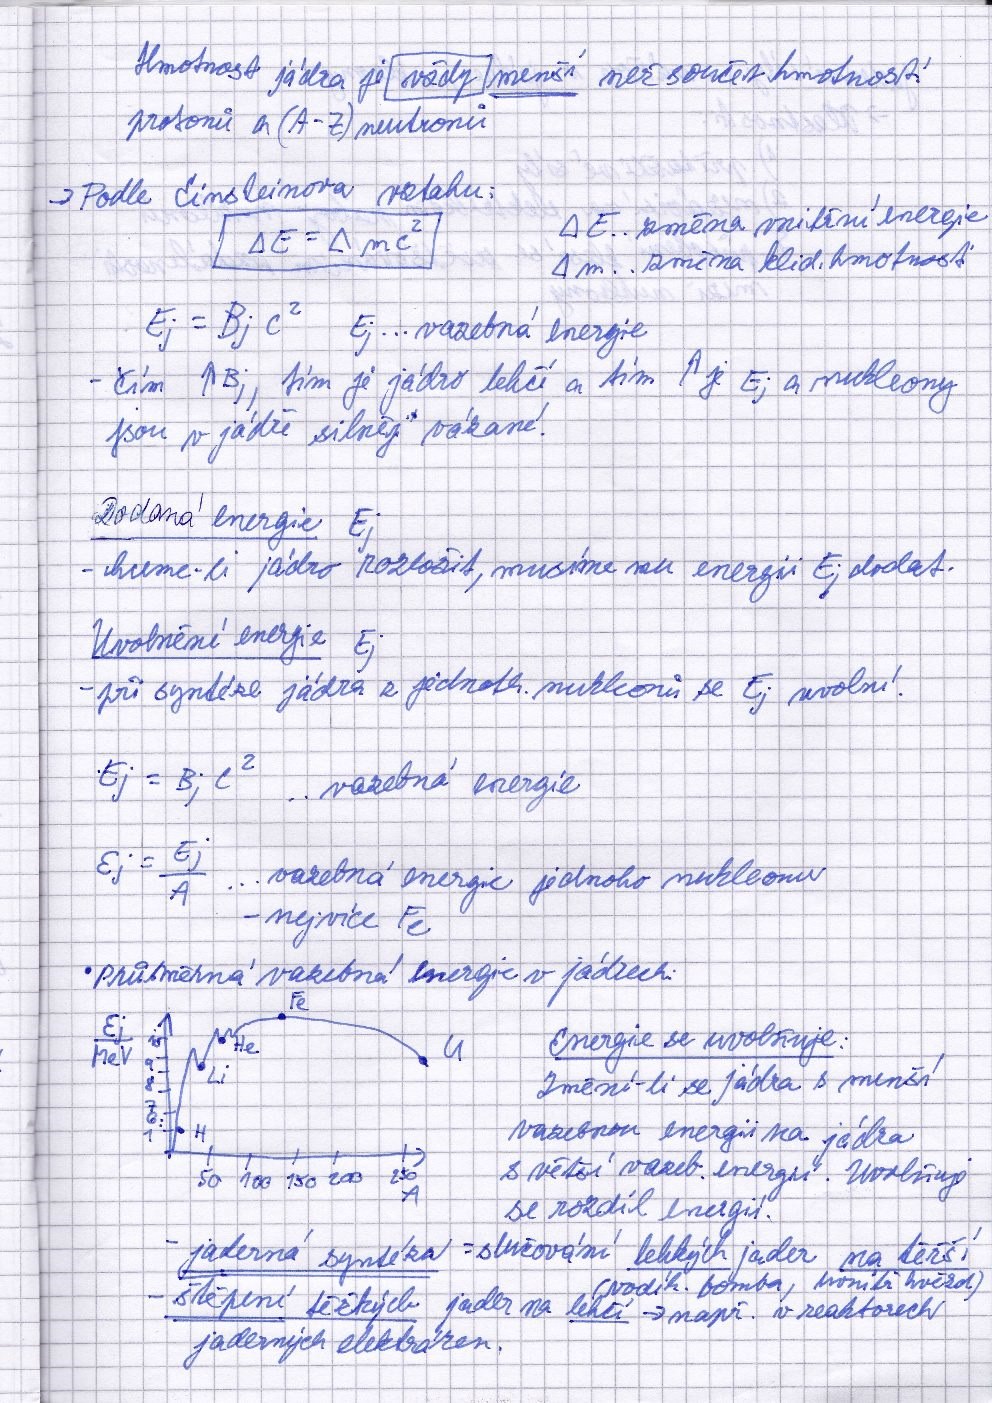 Hmotnost jádra je vždy menší než součet hmotností
protonů a (A-Z) neutronů
→ Podle Einsteinova vztahu:
ΔE = Δmc²
ΔE.. změna vnitřní energie
Δm.. změna klid. hmotnosti
Ej = Bj c²   Ej...vazebná energie
- čím ↑Bj, tím je jádro lehčí a tím ↑ je Ej a nukleony
jsou v jádře silněji vázané.
Dodaná energie Ej
- chceme-li jádro rozložit, musíme mu energii Ej dodat.
Uvolnění energie Ej
- při syntéze jádra z jednotl. nukleonů se Ej uvolní.
Ej = Bj c² ..vazebná energie
εj = Ej/A ...vazebná energie jednoho nukleonu
- nejvíce Fe
• průměrná vazebná energie v jádrech:
εj/MeV
10
9
8
7
6
1
H
Li
He
Fe
U
50 100 150 200 250
A
Energie se uvolňuje:
Změní-li se jádra s menší
vazebnou energií na jádra
s větší vazeb. energií. Uvolňuje
se rozdíl energií.
- jaderná syntéza = slučování lehkých jader na těžší
(vodík. bomba, nitro hvězd)
- štěpení těžkých jader na lehčí → např. v reaktorech
jaderných elektráren.